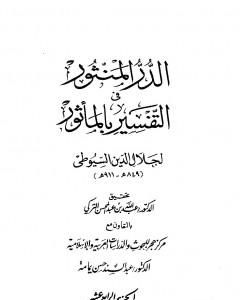 الدر المنثور
في
التفسير بالمأثور
لجلال الدين السيوطي
(٨٤٩هـ - ٩١١هـ)
تحقيق
الدكتور عبد الله بن عبد المحسن التركي
بالتعاون مع
مركز هجر للبحوث والدراسات العربية والإسلامية
الدكتور عبد السند حسن يمامة
الجزء الرابع عشر